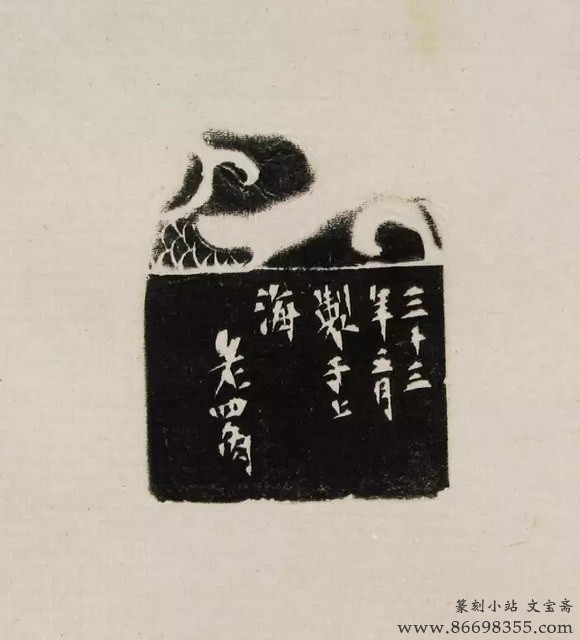 三十三
年五月
製于上
海
老四
篆刻小站 文宝斋
www.86698355.com